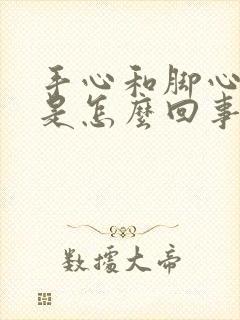 手心和脚心
是怎麽回事
数據大帝